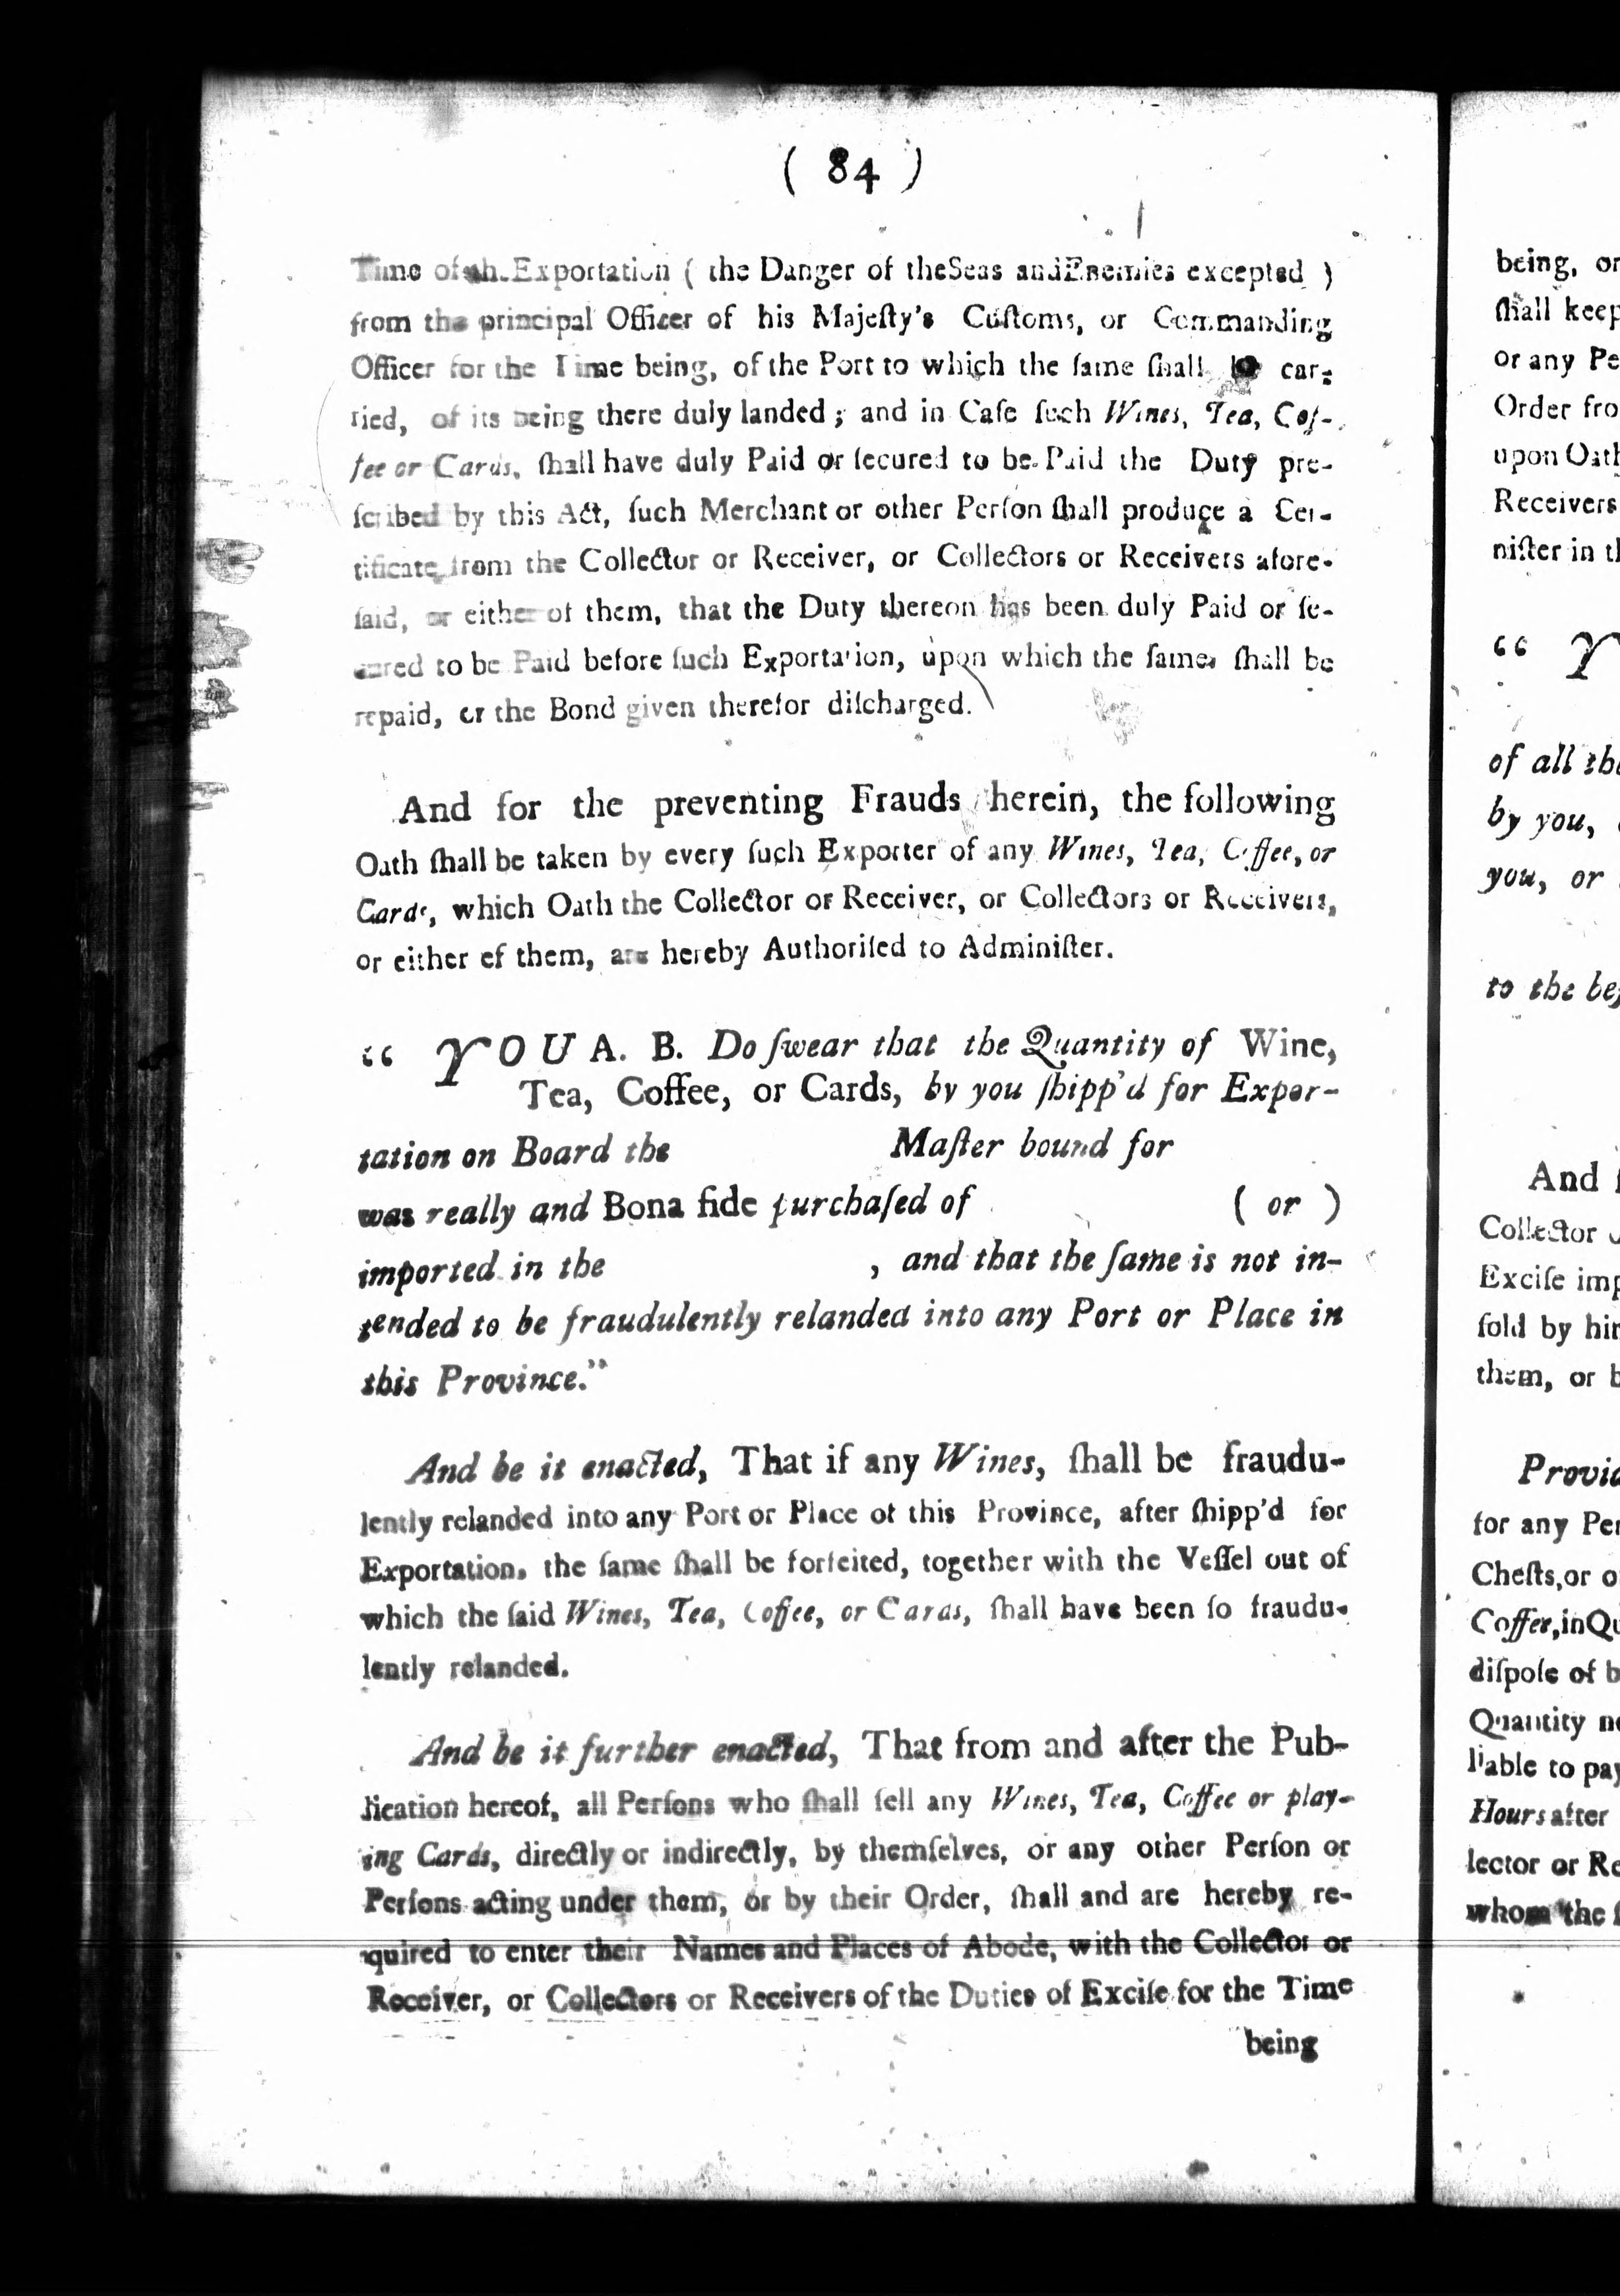 ( 84 )
Time of th. Exportation ( the Danger of theSeas andEnemies excepted )
from the principal Officer of his Majeſty's Cuſtoms, or Commanding
Officer for the Time being, of the Port to which the ſame ſhall be car-
ried, of its being there duly landed; and in Caſe ſuch Wines, Tea, Cof-
fee or Cards, ſhall have duly Paid or ſecured to be Paid the Duty pre-
ſcribed by this Act, ſuch Merchant or other Perſon ſhall produce a Cer-
tificate from the Collector or Receiver, or Collectors or Receivers afore-
ſaid, or either of them, that the Duty thereon has been duly Paid or ſe-
cured to be Paid before ſuch Exportation, upon which the ſame ſhall be
repaid, or the Bond given therefor diſcharged.
And for the preventing Frauds herein, the following
Oath ſhall be taken by every ſuch Exporter of any Wines, Tea, Coffee, or
Cards, which Oath the Collector or Receiver, or Collectors or Receivers,
or either ef them, are hereby Authoriſed to Adminiſter.
“ YOU A. B. Do ſwear that the Quantity of Wine,
Tea, Coffee, or Cards, by you ſhipp'd for Expor-
tation on Board the Maſter bound for
was really and Bona fide purchaſed of ( or )
imported in the , and that the ſame is not in-
tended to be fraudulently relanded into any Port or Place in
this Province.”
And be it enacted, That if any Wines, ſhall be fraudu-
lently relanded into any Port or Place of this Province, after ſhipp'd for
Exportation, the ſame ſhall be forfeited, together with the Veſſel out of
which the ſaid Wines, Tea, Coffee, or Cards, ſhall have been ſo fraudu-
lently relanded.
And be it further enacted, That from and after the Pub-
lication hereof, all Perſons who ſhall ſell any Wines, Tea, Coffee or play-
ing Cards, directly or indirectly, by themſelves, or any other Perſon or
Perſons acting under them, or by their Order, ſhall and are hereby re-
quired to enter their Names and Places of Abode, with the Collector or
Receiver, or Collectors or Receivers of the Duties of Exciſe for the Time
being
being, or
ſhall keep
or any Pe
Order fro
upon Oath
Receivers
niſter in th
“ Y
of all the
by you,
you, or
to the beſ
And
Collector
Exciſe imp
ſold by hi
them, or b
Provid
for any Per
Cheſts,or o
Coffee,inQu
diſpoſe of b
Quantity n
liable to pay
Hours after
lector or Re
whom the ſ